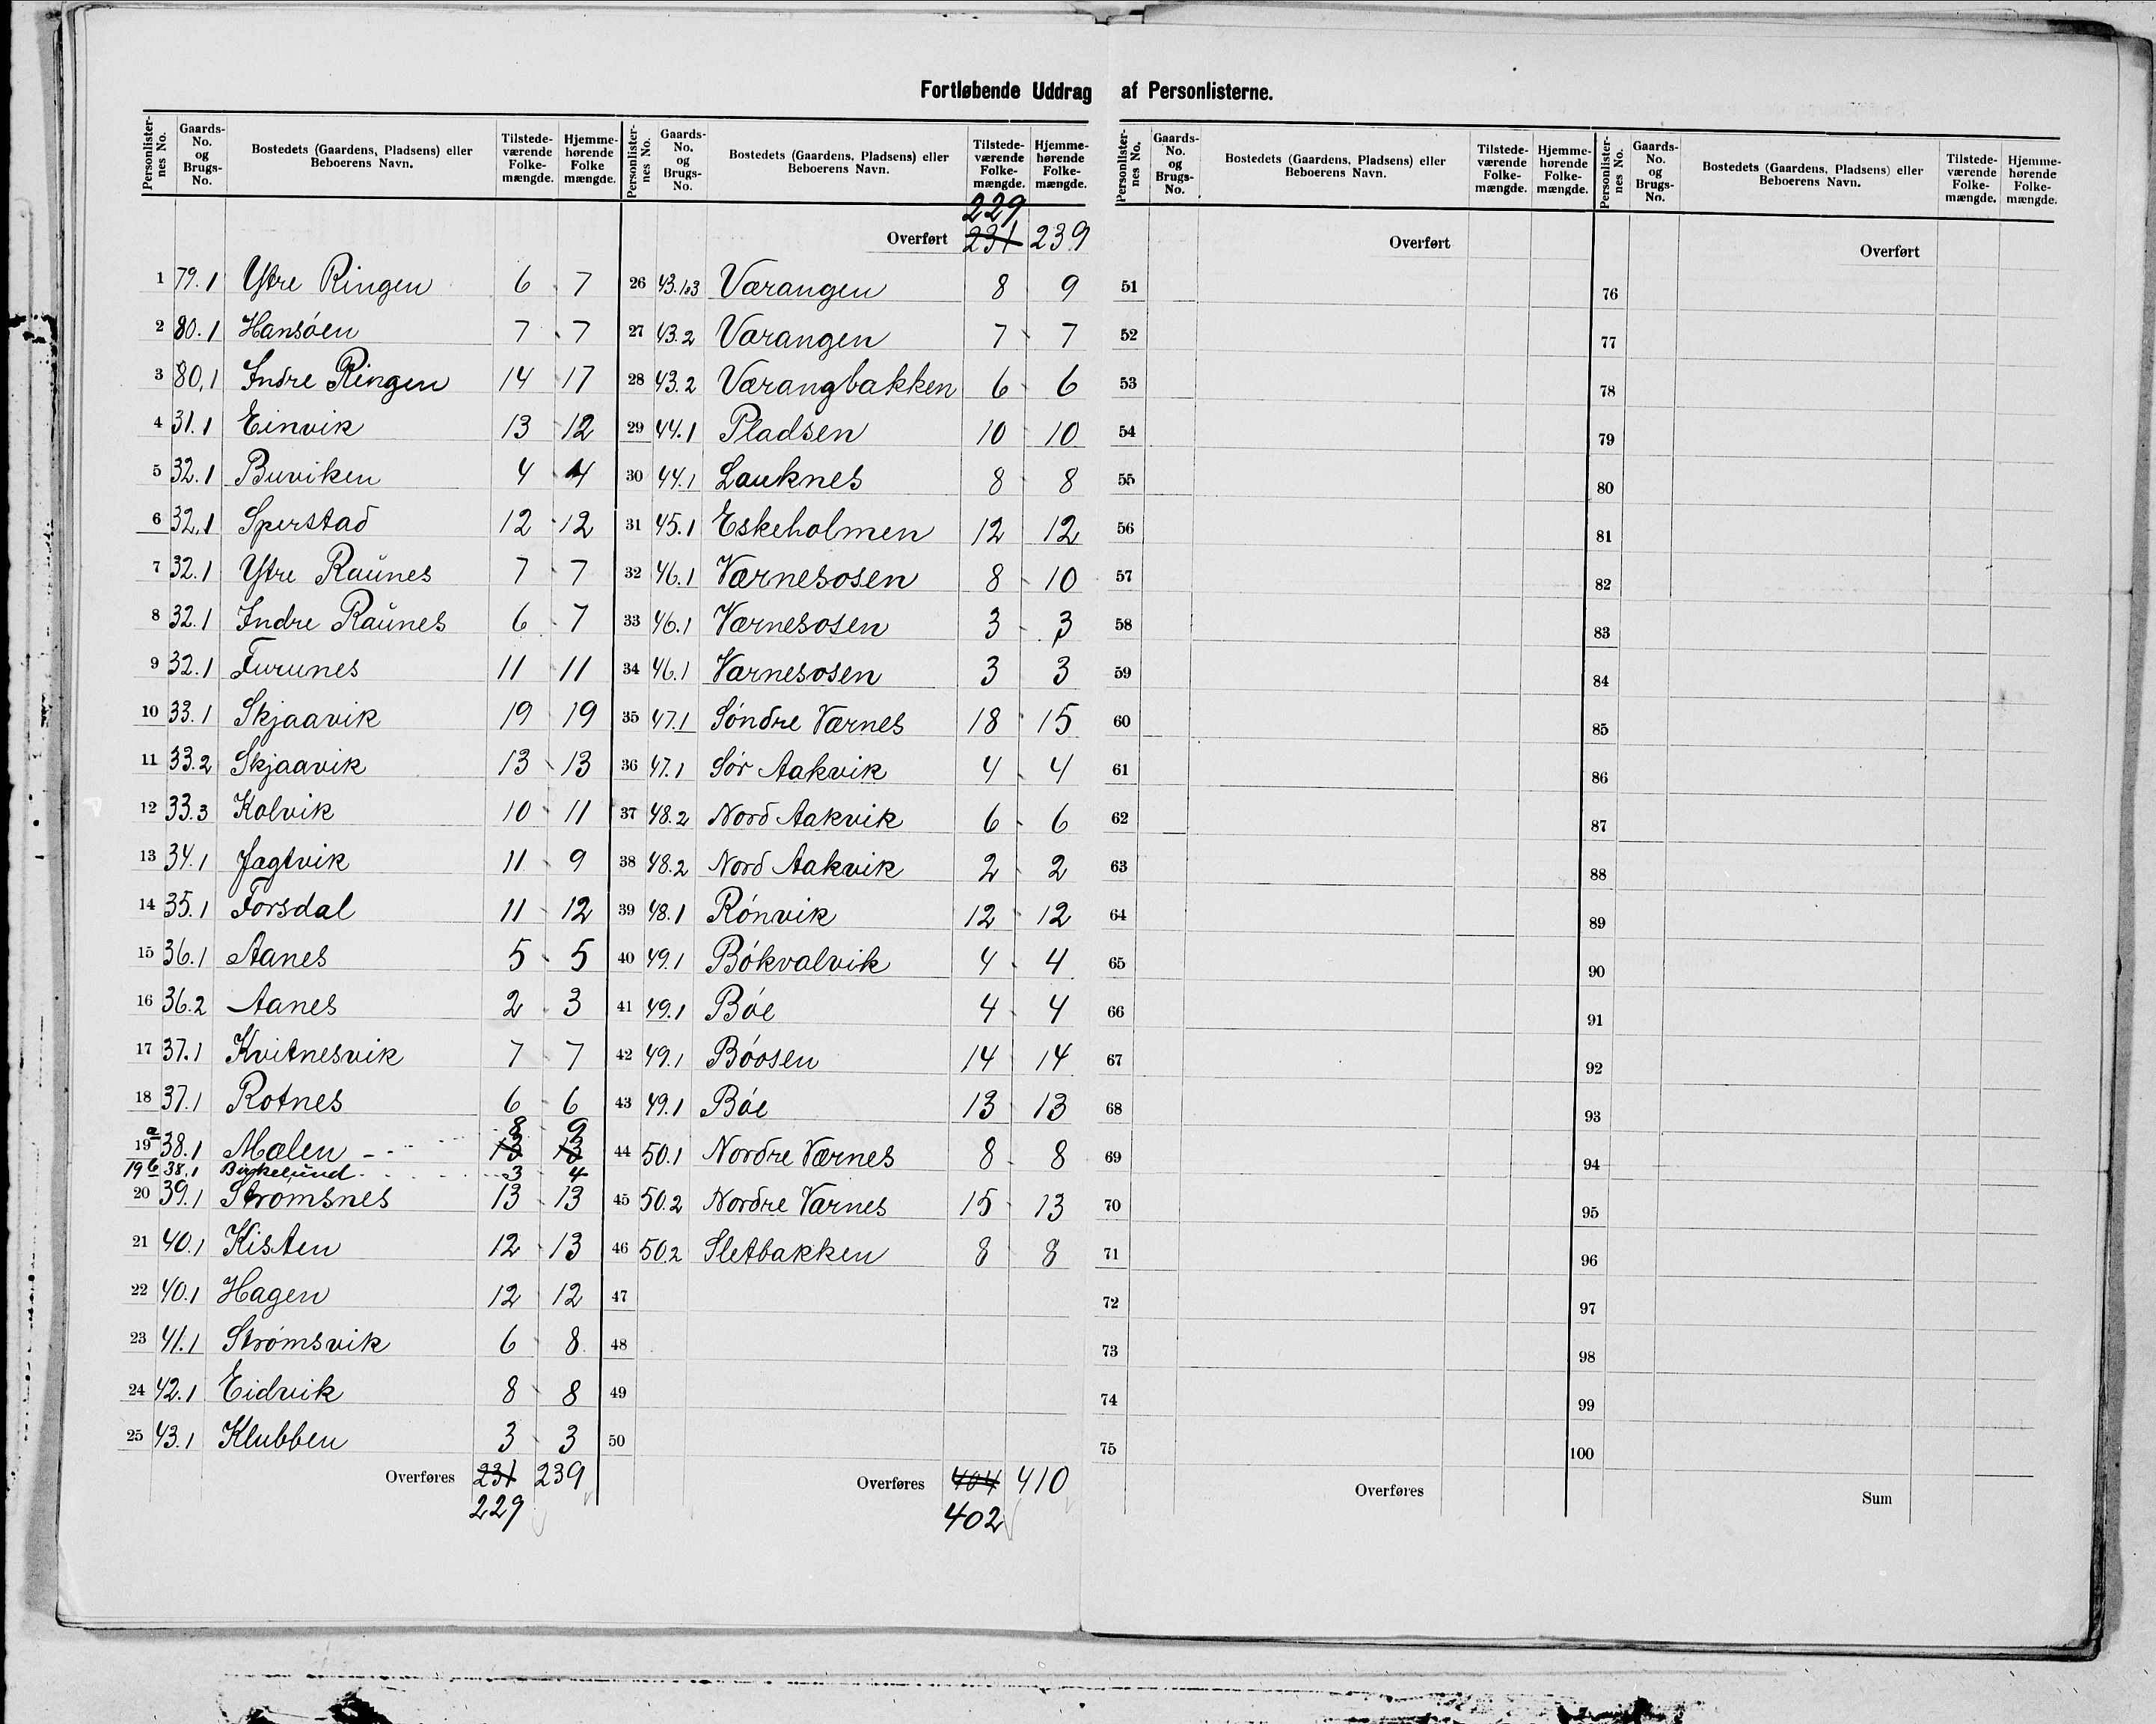 Fortløbende Uddrag af Personlisterne.
Personlister-nes No. Gaards-No. og Brugs-No. Bostedets (Gaardens, Pladsens) eller Beboerens Navn. Tilstede-værende Folke-mængde. Hjemme-hørende Folke mængde.
1 79.1 Ytre Ringen 6 7
2 80.1 Hansøen 7 7
3 80,1 Indre Ringen 14 17
4 31.1 Einvik 13 12
5 32.1 Buviken 4 4
6 32.1 Sperstad 12 12
7 32.1 Ytre Raunes 7 7
8 32.1 Indre Raunes 6 7
9 32.1 Furunes 11 11
10 33.1 Skjaavik 19 19
11 33.2 Skjaavik 13 13
12 33.3 Kolvik 10 11
13 34.1 Jagtvik 11 9
14 35.1 Forsdal 11 12
15 36.1 Aanes 5 5
16 36.2 Aanes 2 3
17 37.1 Kvitnesvik 7 7
18 37.1 Rotnes 6 6
8 9
19a 38.1 Mælen 13 13
19b 38.1 Birkelund 3 4
20 39.1 Strømsnes 13 13
21 40.1 Kisten 12 13
22 40.1 Hagen 12 12
23 41.1 Strømsvik 6 8
24 42.1 Eidvik 8 8
25 43.1 Klubben 3 3
Overføres 231 239
229
Personlister-nes No. Gaards-No. og Brugs-No. Bostedets (Gaardens, Pladsens) eller Beboerens Navn. Tilstede-værende Folke-mængde. Hjemme-hørende Folke-mængde.
229
Overført 231 239
26 43.1o3 Værangen 8 9
27 43.2 Værangen 7 7
28 43.2 Værangbakken 6 6
29 44.1 Pladsen 10 10
30 44.1 Lauknes 8 8
31 45.1 Eskeholmen 12 12
32 46.1 Værnesosen 8 10
33 46.1 Værnesosen 3 3
34 46.1 Værnesosen 3 3
35 47.1 Søndre Værnes 18 15
36 47.1 Sør Aakvik 4 4
37 48.2 Nord Aakvik 6 6
38 48.2 Nord Aakvik 2 2
39 48.1 Rønvik 12 12
40 49.1 Bøkvalvik 4 4
41 49.1 Bøe 4 4
42 49.1 Bøosen 14 14
43 49.1 Bøe 13 13
44 50.1 Nordre Værnes 8 8
45 50.2 Nordre Værnes 15 13
46 50.2 Sletbakken 8 8
47
48
49
50
Overføres 404 410
402
Personlister-nes No. Gaards-No. og Brugs-No. Bostedets (Gaardens, Pladsens) eller Beboerens Navn. Tilstede-værende Folke-mængde. Hjemme-hørende Folke-mængde.
Overført
51
52
53
54
55
56
57
58
59
60
61
62
63
64
65
66
67
68
69
70
71
72
73
74
75
Overføres
Personlister-nes No. Gaards-No. og Brugs-No. Bostedets (Gaardens, Pladsens) eller Beboerens Navn. Tilstede-værende Folke-mængde. Hjemme-hørende Folke-mængde.
Overført
76
77
78
79
80
81
82
83
84
85
86
87
88
89
90
91
92
93
94
95
96
97
98
99
100
Sum